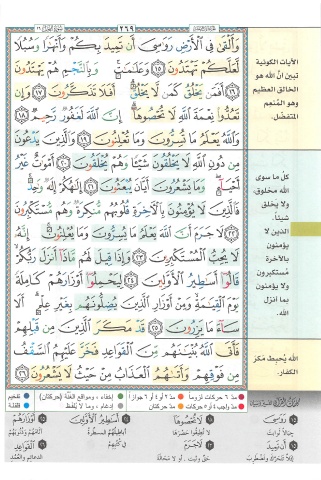 ٢٦٩
وَأَلْقَىٰ فِي ٱلْأَرْضِ رَوَٰسِيَ أَن تَمِيدَ بِكُمْ وَأَنْهَٰرًا وَسُبُلًا
لَّعَلَّكُمْ تَهْتَدُونَ ١٥ وَعَلَٰمَٰتٍ ۚ وَبِٱلنَّجْمِ هُمْ يَهْتَدُونَ
١٦ أَفَمَن يَخْلُقُ كَمَن لَّا يَخْلُقُ ۗ أَفَلَا تَذَكَّرُونَ ١٧ وَإِن
تَعُدُّوا۟ نِعْمَةَ ٱللَّهِ لَا تُحْصُوهَآ ۗ إِنَّ ٱللَّهَ لَغَفُورٌ رَّحِيمٌ ١٨
وَٱللَّهُ يَعْلَمُ مَا تُسِرُّونَ وَمَا تُعْلِنُونَ ١٩ وَٱلَّذِينَ يَدْعُونَ
مِن دُونِ ٱللَّهِ لَا يَخْلُقُونَ شَيْـًٔا وَهُمْ يُخْلَقُونَ ٢٠ أَمْوَٰتٌ غَيْرُ
أَحْيَآءٍ ۖ وَمَا يَشْعُرُونَ أَيَّانَ يُبْعَثُونَ ٢١ إِلَٰهُكُمْ إِلَٰهٌ وَٰحِدٌ ۚ
فَٱلَّذِينَ لَا يُؤْمِنُونَ بِٱلْآخِرَةِ قُلُوبُهُم مُّنكِرَةٌ وَهُم مُّسْتَكْبِرُونَ
٢٢ لَا جَرَمَ أَنَّ ٱللَّهَ يَعْلَمُ مَا يُسِرُّونَ وَمَا يُعْلِنُونَ ۚ إِنَّهُۥ
لَا يُحِبُّ ٱلْمُسْتَكْبِرِينَ ٢٣ وَإِذَا قِيلَ لَهُم مَّاذَآ أَنزَلَ رَبُّكُمْ ۙ
قَالُوٓا۟ أَسَٰطِيرُ ٱلْأَوَّلِينَ ٢٤ لِيَحْمِلُوٓا۟ أَوْزَارَهُمْ كَامِلَةً
يَوْمَ ٱلْقِيَٰمَةِ ۙ وَمِنْ أَوْزَارِ ٱلَّذِينَ يُضِلُّونَهُم بِغَيْرِ عِلْمٍ ۗ أَلَا
سَآءَ مَا يَزِرُونَ ٢٥ قَدْ مَكَرَ ٱلَّذِينَ مِن قَبْلِهِمْ
فَأَتَى ٱللَّهُ بُنْيَٰنَهُم مِّنَ ٱلْقَوَاعِدِ فَخَرَّ عَلَيْهِمُ ٱلسَّقْفُ
مِن فَوْقِهِمْ وَأَتَىٰهُمُ ٱلْعَذَابُ مِنْ حَيْثُ لَا يَشْعُرُونَ ٢٦
الآيات الكونية
تبين أن الله هو
الخالق العظيم
وهو المنعم
المتفضل.
كل ما سوى
الله مخلوق،
ولا يخلق
شيئاً.
الذين لا
يؤمنون
بالآخرة
مستكبرون
ولا يؤمنون
بما أنزل
الله.
الله يُحبط مكر
الكفار.